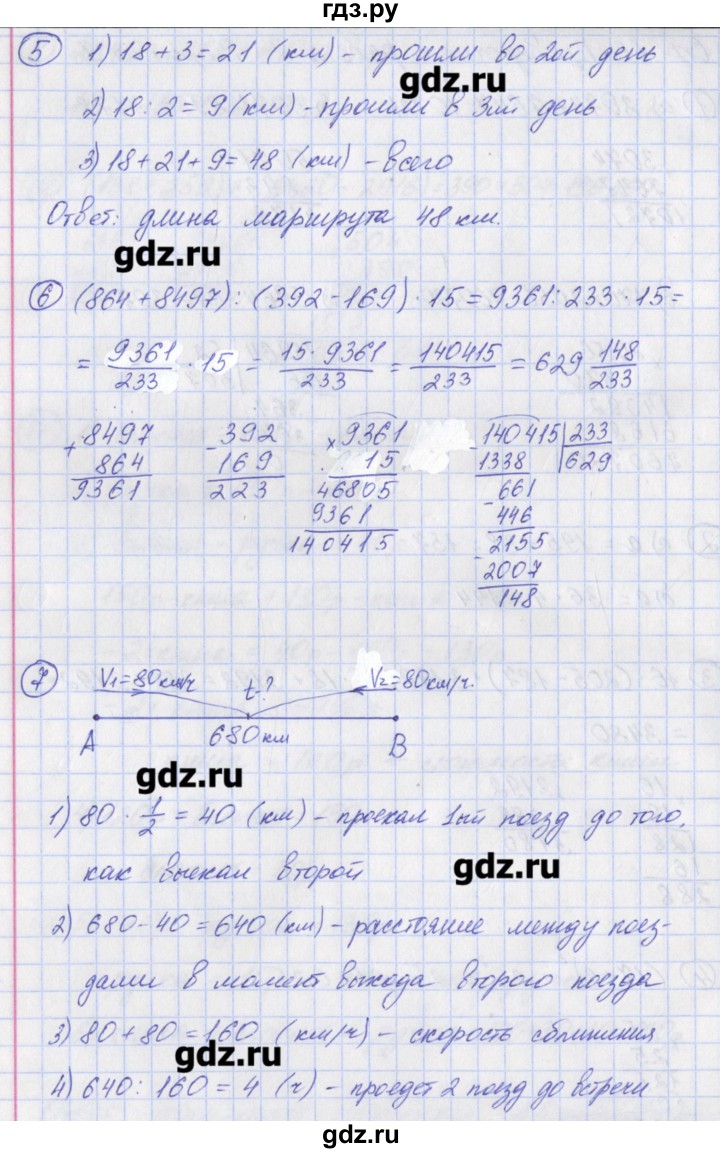 гдз.ру
5 1) 18 + 3 = 21 (км) - прошли во 2ой день
gdz.ru
2) 18 : 2 = 9 (км) - прошли в 3ий день
3) 18 + 21 + 9 = 48 (км) - всего
Ответ: длина маршрута 48 км.
gdz.ru
6 (864 + 8497) : (392 - 169) · 15 = 9361 : 233 · 15 =
= 9361/233 · 15 = 15 · 9361/233 = 140415/233 = 629 148/233
+ 8497 - 392 × 9361 - 140415 | 233
864 169 15 1338 | 629
9361 223 46805 - 661
9361 446
140415 - 2155
2007
148
7 V1 = 80 км/ч t-? V2 = 80 км/ч.
A 680 км B
gdz.ru
1) 80 · 1/2 = 40 (км) - проехал 1ый поезд до того,
как выехал второй
gdz.ru
2) 680 - 40 = 640 (км) - расстояние между поез-
дами в момент выхода второго поезда
3) 80 + 80 = 160 (км/ч) - скорость сближения
gdz.ru
4) 640 : 160 = 4 (ч) - проедет 2 поезд до встречи
gdz.ru